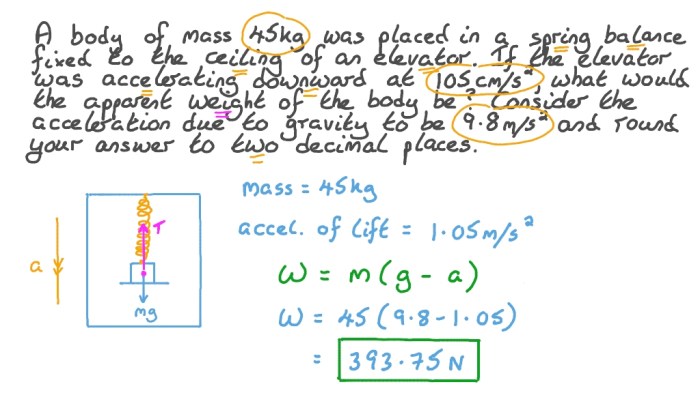 A body of mass 45kg was placed in a spring balance
fixed to the ceiling of an elevator. If the elevator
was accelerating downward at 105 cm/s², what would
the apparent weight of the body be? Consider the
acceleration due to gravity to be 9.8 m/s² and round
your answer to two decimal places.
mass = 45kg
accel. of lift = 1.05 m/s²
a
T
mg
W = m(g - a)
W = 45(9.8 - 1.05)
= 393.75 N